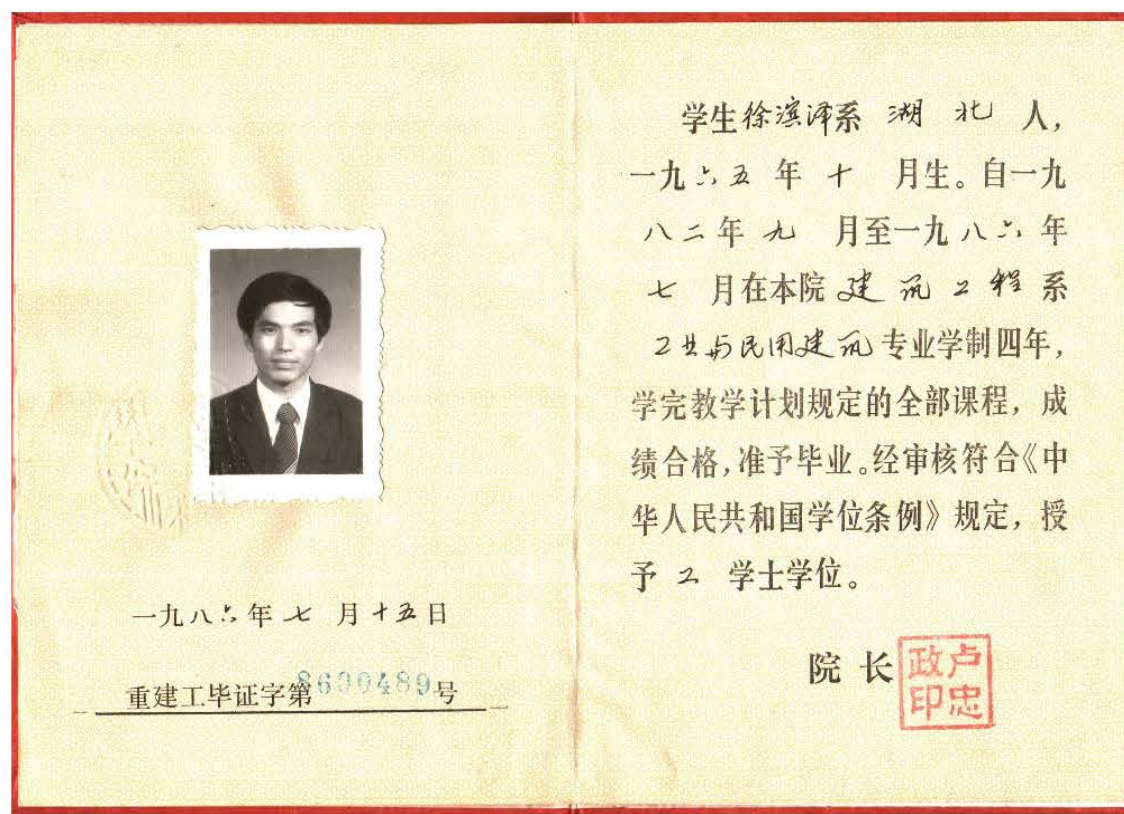 一九八六年七月十五日
重建工毕证字第8600489号
学生徐滨泽系湖北人，
一九六五年十月生。自一九
八二年九月至一九八六年
七月在本院建筑工程系
工业与民用建筑专业学制四年，
学完教学计划规定的全部课程，成
绩合格，准予毕业。经审核符合《中
华人民共和国学位条例》规定，授
予工学士学位。
院长
卢忠
政印